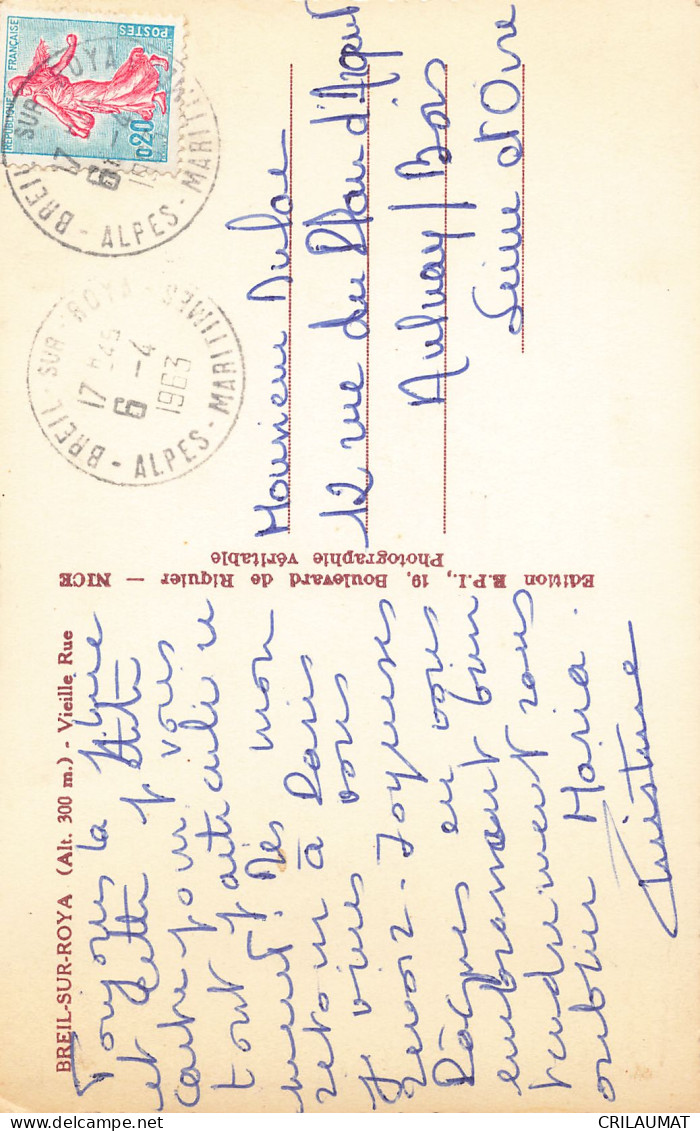 BREIL-SUR-ROYA (Alt. 300 m.) - Vieille Rue
Toujours la ligne
et cette petite
carte pour vous
tout particuliere
ment. Dès mon
retour à Paris
je viens vous
revoir. Joyeuses
Pâques en vous
embrassant bien
tendrement sans
oublier Maria.
Edition E.P.I., 19, Boulevard de Riquier — NICE
Photographie véritable
REPUBLIQUE FRANÇAISE
POSTES
0,20
BREIL - SUR - ROYA
17 H
6 -4
19
ALPES - MARITIMES
BREIL - SUR - ROYA
17 H45
6 -4
1963
ALPES - MARITIMES
Monsieur Dulac
12 rue du d'Argent
Aulnay / Bois
Seine et Oise
CRILAUMAT